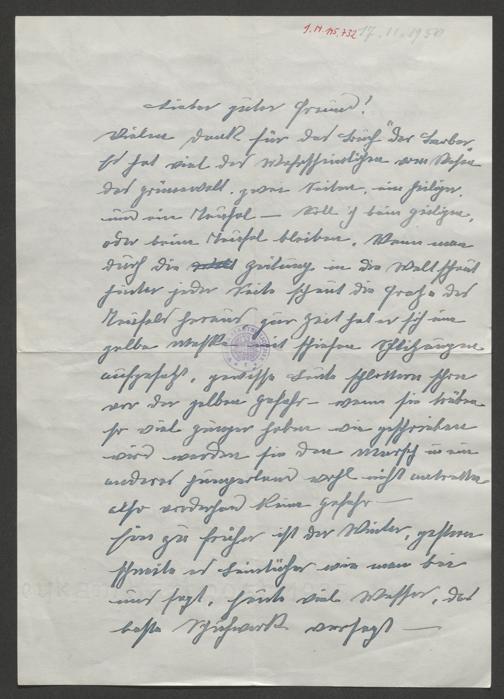 I.N. 115.732 17.11.1950
Lieber guter Freund!
Vielen Dank für das Buch "der Barbar"
Er hat viel des Wahrscheinlichen vom Wesen
des Grünewald. zwei Seiten. ein Heiliger.
und ein Teufel — Soll ich beim Heiligen,
oder beim Teufel bleiben. Wenn man
durch die Zeitung in die Welt schaut
hinter jeder Seite schaut die Fratze des
Teufels heraus, zur Zeit hat er sich eine
gelbe Maske mit schiefen Schlitzaugen
aufgesetzt, gewisse Leute schlottern schon
vor der gelben Gefahr — wenn sie drüben
so viel Hunger haben wie geschrieben
wird werden sie den Marsch in ein
anderes Hungerland wohl nicht antreten
also vorderhand keine Gefahr —
Hier zu früher ist der Winter, gestern
schneite er Leintücher wie man bei
uns sagt, heute viel Wasser, das
beste Schuhwerk versagt —